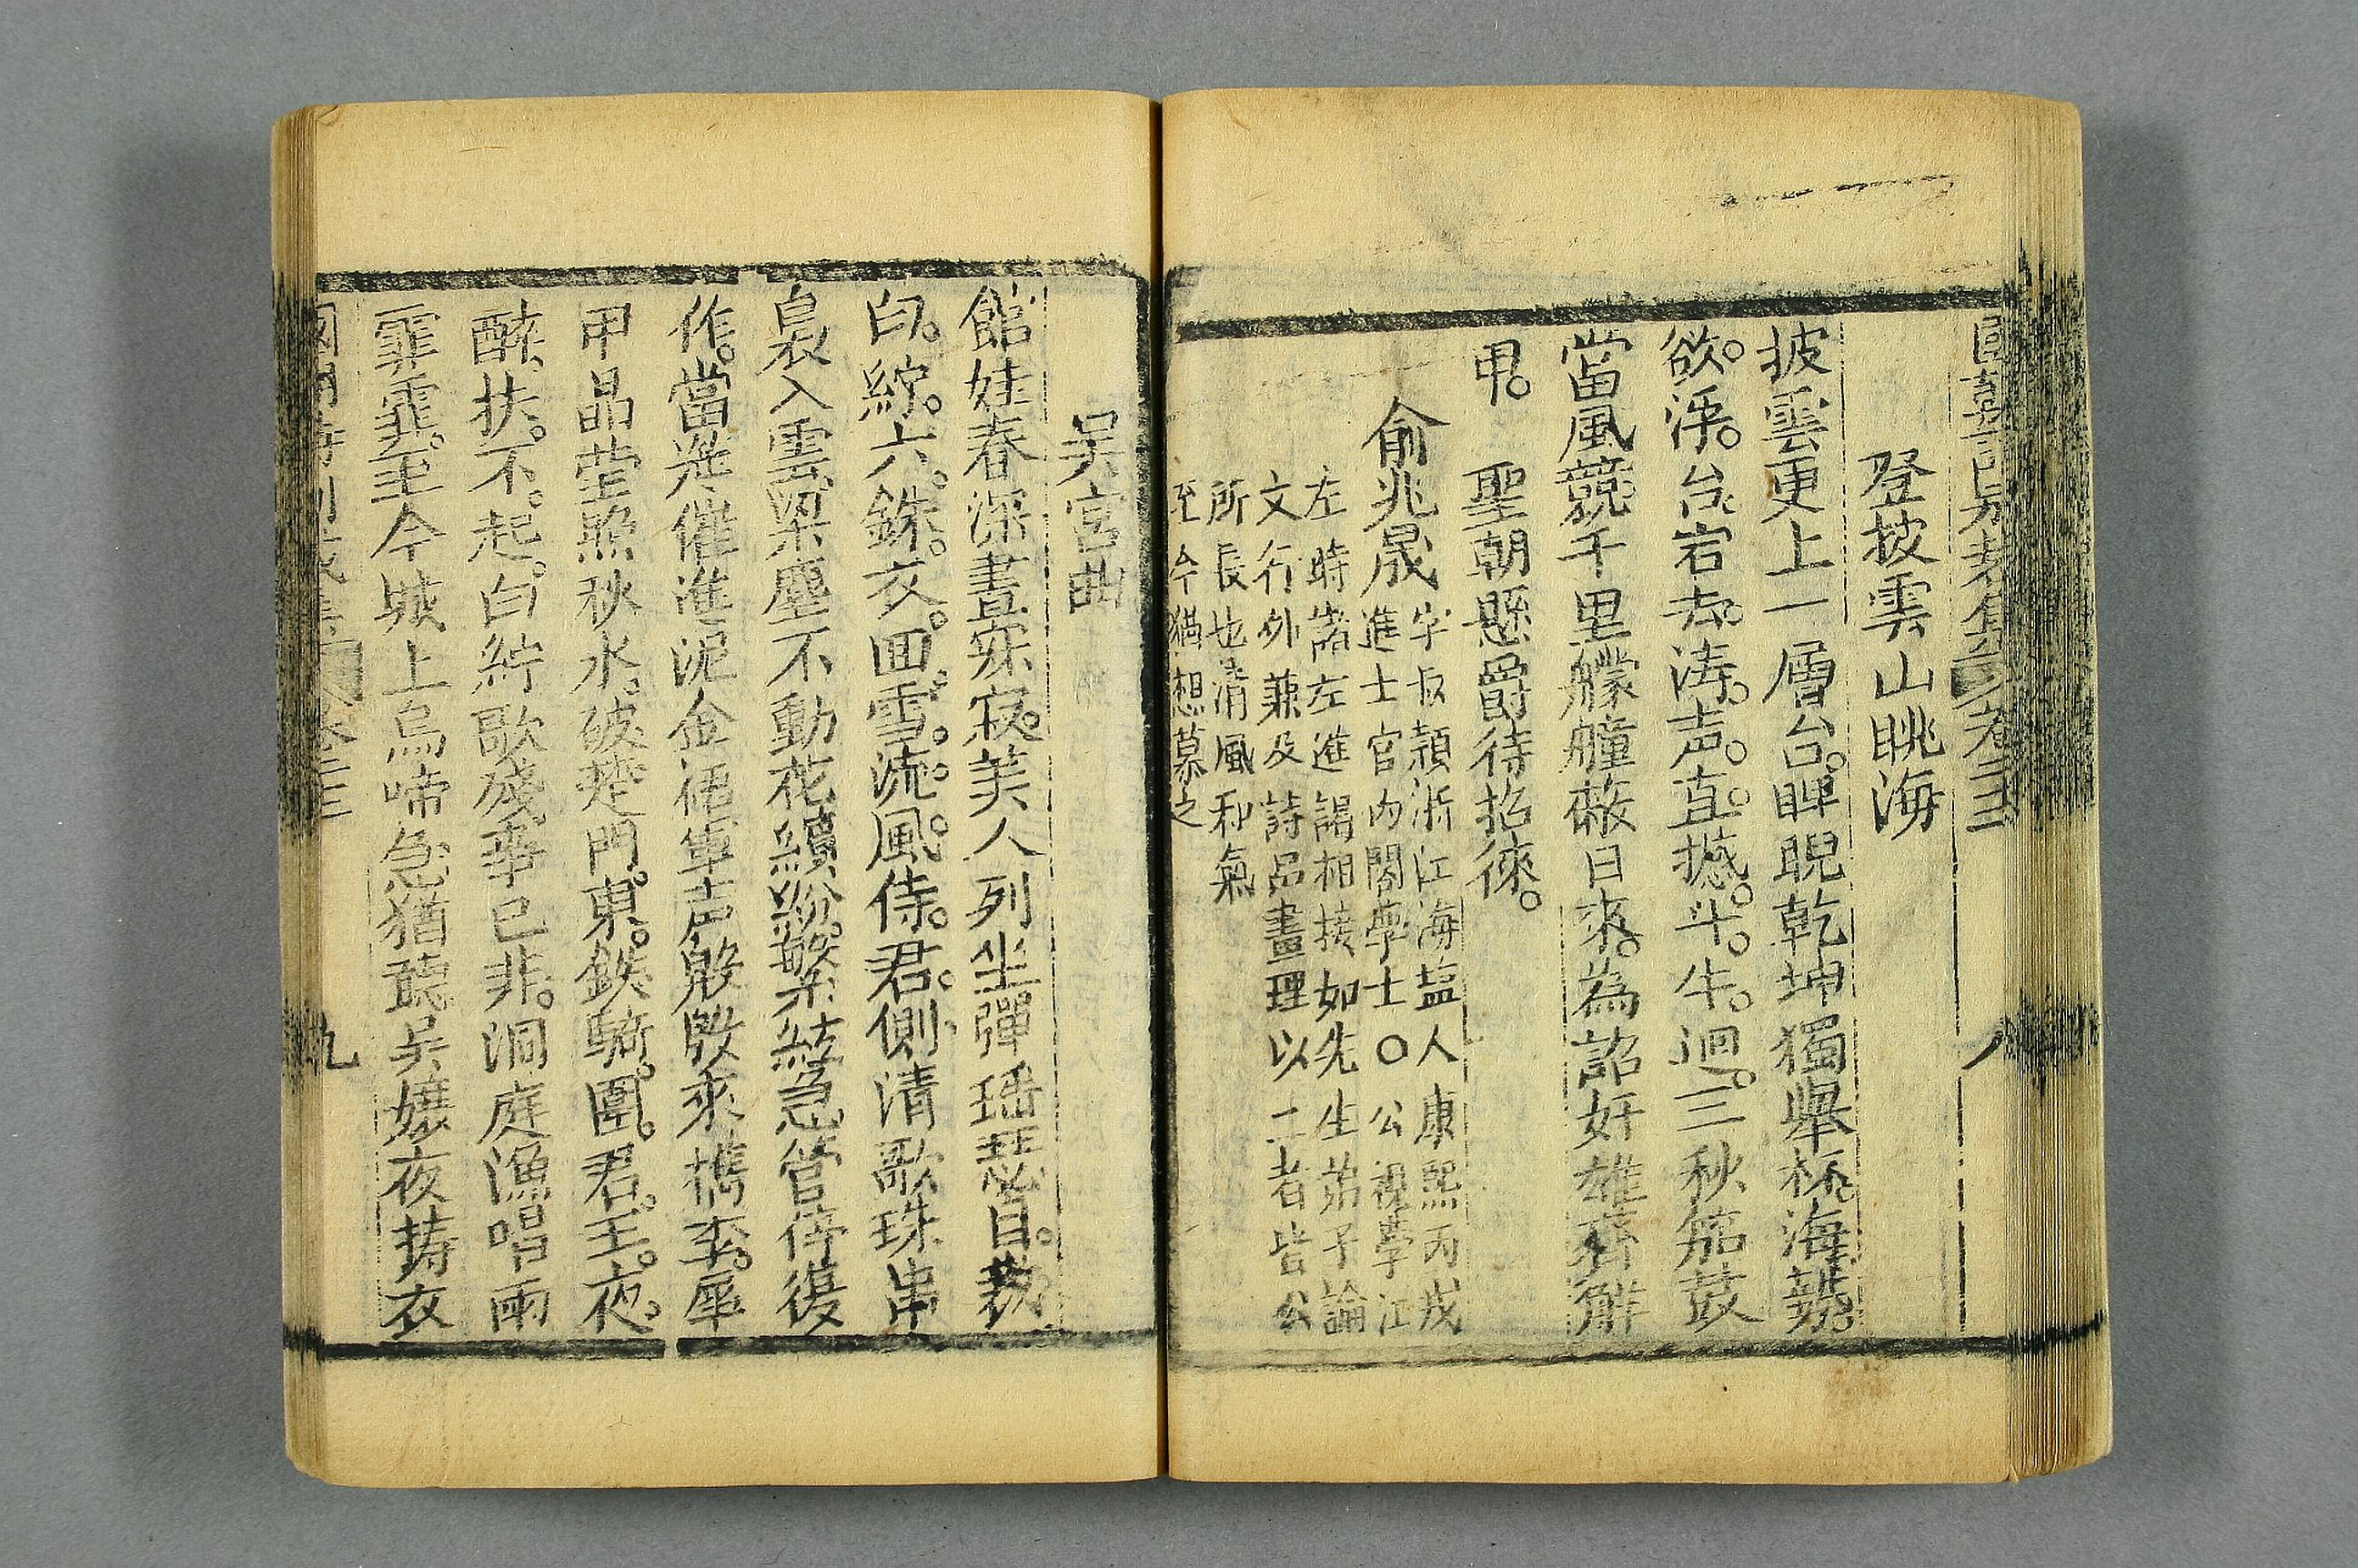 登披雲山眺海
披雲更上一層台。睥睨乾坤獨舉杯。海
欲浮。台宕去。涛。声。直。撼。斗。牛。迴。三秋笳鼓
當風競千里艨艟蔽日來。為詔奸雄齊解
甲。聖朝懸爵待招徠。
俞兆晟
字叔穎浙江海盐人康熙丙戌
進士官内閣學士〇公視學江
左時諸左進謁相接如先生弟子論
文行外兼及詩品畫理以二者皆公
所長也清風和氣
至今猶想慕之
卷三
八
吴宫曲
館娃春深晝寂寂。美人列坐彈瑶瑟。自裁
白。紵。六。銖。衣。囬。雪。流。風。侍。君。側清歌珠串
裊入雲。梁塵不動花繽紛。繁絃急管停復
作。當筵催進泥金 軍声殷殷來檇李。犀
甲晶莹照秋水。破楚門。東。鉄騎。圍。君。王。夜。
醉。扶。不。起。白紵歌殘事已非。洞庭漁唱雨
霏霏。至今城上烏啼急猶聽吴孃夜擣衣
卷三
九